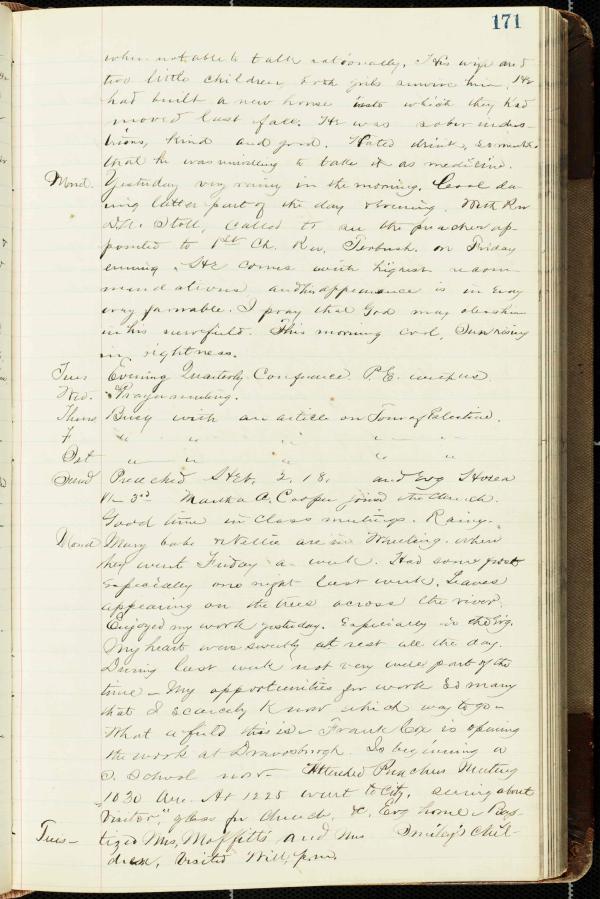 171
when not able to talk rationally. His wife and
two little children, both girls survive him. He
had built a new house into which they had
moved last fall. He was sober indus-
trious, kind and good. Hated drink, so much
that he was unwilling to take it as medicine.
Mond. Yesterday very rainy in the morning. Cool du-
ring latter part of the day & evening. With Rev
Stoll, called to see the preacher ap-
pointed to 1st Ch. Rev. on Friday
evening. He comes with highest recom-
mendations and his appearance is in every
way favorable. I pray that God may
in his new field. This morning cool, Sun rising
in brightness.
Tues Evening Quarterly Conference. P.E. with us
Wed. Prayer meeting.
Thurs Busy with an article on Tour of Palestine.
F " " " " "
Sat " " " " "
Sund Preached Heb. 2.18. and Evg Hosea
3rd Martha C. Cooper joined the church.
Good time in class meetings. Rainy.
Mond Mary babe & Nellie are in Wheeling. when
they went Friday a week. Had some frost
Especially one night last week. Leaves
appearing on the trees across the river.
Enjoyed my work yesterday. Especially in the Evg.
My heart was sweetly at rest all the day.
During last week not very well part of the
time – My opportunities for work so many
that I scarcely know which way to go –
What a field this is – Frank Cox is opening
the work at Dravosburgh. Is beginning a
S. School now – Attended Preachers Meeting
1030 Am. At 1225 went to City, seeing about
"Visitor," glass for church, &c. Evg home – Bap-
Tues – tized Mrs, Moffitts and Mrs Smiley's chil-
dren, Visited Will, p.m.